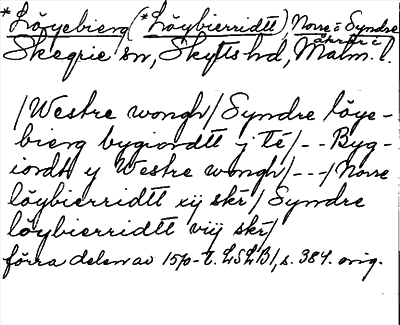 *Löyebierg (*Löybierridtt), Norre o Syndre
åkrar i
Skegrie sn, Skytts hd, Malm. l.
/Westre wongh/ Syndre löye-
bierg bygiordtt j té/ - - Byg-
iordtt y Westre wongh/ - - -/ Norre
löybierridtt xij skr/ Syndre
löybierridtt viij skr/
förra delen av 15/0-t. LSLB1, s. 384. orig.